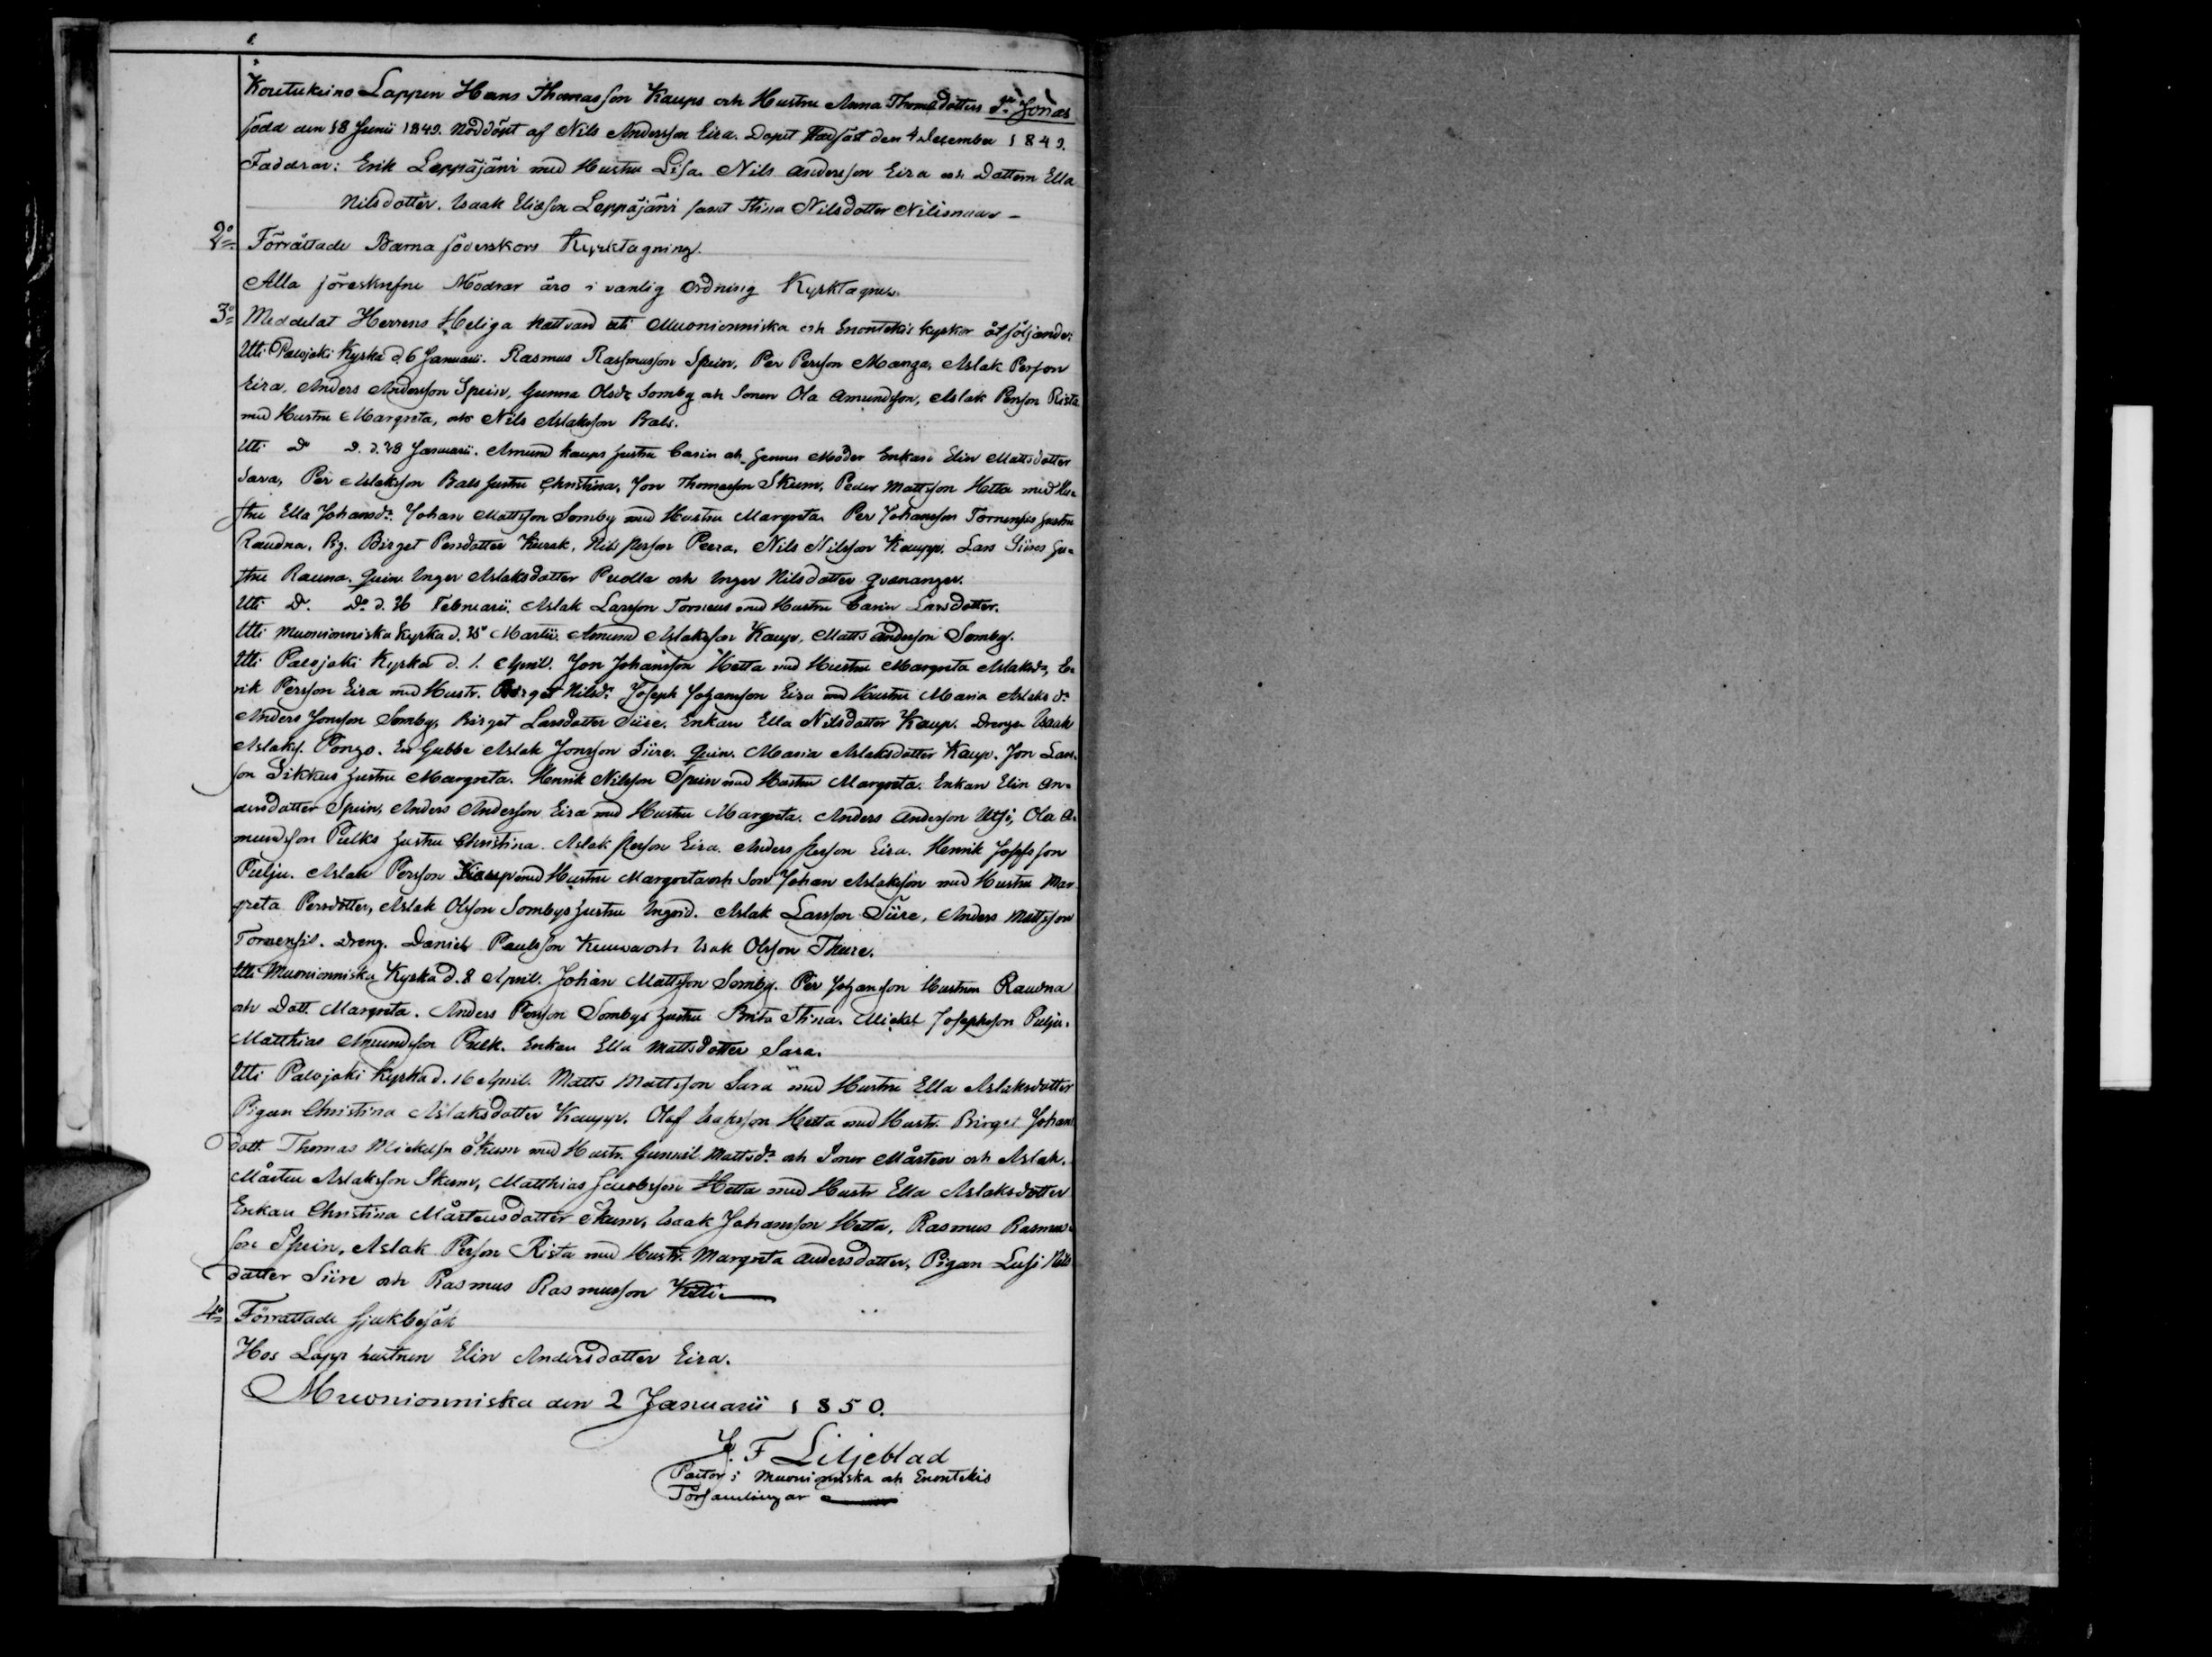 Koutukeino Lappen Hans Thomasson Kaups och Hustru Anna Thomædotters Sn Jonas
född den 18 Junii 1849. Nöddöpt af Nils Andersson Eira. Dopet stadfäst den 4 December 1849.
Faddrar: Erik Leppäjärvi med Hustru Lisa. Nils Andersson Eira och Dottern Ella
Nilsdotter. Isaak Eliasson Leppäjärvi samt Stina Nilsdotter
2o Förrättade Barnaföderskors Kyrktagning.
Alla föreskrifne Mödrar äro i vanlig ordning Kyrktagne.
3o Meddelat Herrens Heliga Nattvard uti Muonionniska och Enontekis kyrkor åt följande:
Uti Palojoki Kyrka d. 6 Januarii. Rasmus Rasmusson Spein, Per Persson Manga, Aslak Persson
Eira, Anders Andersson Spein, Gunna Olsdr Somby och Sonen Ola Amundsson, Aslak Persson Rista
med Hustru Margreta, och Nils Aslaksson Bals.
Uti Do D. d. 28 Januarii. Amund Kaups hustru Carin och hennes Moder Enkan Elin Mattsdotter
Sara, Per Aslaksson Bals hustru Christina, Jon Thomasson Skum, Peder Mattsson Hetta med Hu-
stru Ella Johansdr. Johan Mattsson Somby med Hustru Margreta. Per Johansson Tornensis hustru
Raudna. Pig. Birget Persdotter Kurak, Nils Persson Peera, Nils Nilsson Kaupp, Lars Siires hu-
stru Rauna. Quin. Inger Aslaksdotter Puolla och Inger Nilsdotter Qvænanger.
Uti D. Do d. 26 Februarii. Aslak Larsson Torneus med Hustru Carin Larsdotter.
Uti Muonionniska Kyrka d. 25 Martii. Amund Aslaksson Kaup, Matts Andersson Somby.
Uti Palojoki Kyrka d. 1. April. Jon Johansson Hetta med Hustru Margreta Aslaksdr, E-
rik Persson Eira med Hustr. Birget Nilsdr. Joseph Johansson Eira med Hustru Maria Aslaksdr
Anders Jonsson Somby, Birget Larsdotter Siire. Enkan Ella Nilsdotter Kaup. Drengen Isaak
Aslaks. Pongo. En Gubbe Aslak Jonsson Siire. Quin. Maria Aslaksdotter Kaup. Jon Lars-
son Sikkus hustru Margreta. Henrik Nilsson Spein med Hustru Margreta. Enkan Elin An-
dersdotter Spein, Anders Andersson Eira med Hustru Margreta. Anders Andersson Utsi, Ola A-
mundsson Pulks hustru Christina. Aslak Persson Eira. Anders Persson Eira. Henrik Josefsson
Pulju. Aslak Persson Kaup med Hustru Margreta och Son Johan Aslaksson med Hustru Mar
greta Persdotter, Aslak Olsson Sombys hustru Ingrid. Aslak Larsson Siire, Anders Mattsson
Tornensis. Dreng. Daniel Paulsson och Isak Olsson Thure.
Uti Muonionniska Kyrka d. 8 April. Johan Mattsson Somby. Per Johansson Hustrun Raudna
och Dott. Margreta. Anders Persson Sombys hustru Brita Stina. Mickel Josephsson Pulju.
Matthias Amundsson Pulk. Enkan Ella Mattsdotter Sara.
Uti Palojoki Kyrka d. 16 April. Matts Mattsson Sara med Hustru Ella Aslaksdotter
Pigan Christina Aslaksdotter Kaupp. Olof Isaksson Hetta med Hustr. Birget Johans
dott. Thomas Mickelsn Skum med Hustr. Gunnil Mattsdr och Soner Mårten och Aslak.
Mårten Aslaksson Skum, Matthias Jacobsson Hetta med Hustr Ella Aslaksdotter
Enkan Christina Mårtensdotter Skum, Isaak Johansson Hetta, Rasmus Rasmus-
son Spein, Aslak Persson Rista med Hustr. Margreta Andersdotter, Pigan Lusi Nils
dotter Siire och Rasmus Rasmusson Kitti
4o Förrättade sjukbesök
Hos Lapp hustrun Elin Andersdotter Eira.
Muonionniska den 2 Januarii 1850.
J. F Liljeblad
Pastor i Muonionniska och Enontekis
Församlingar